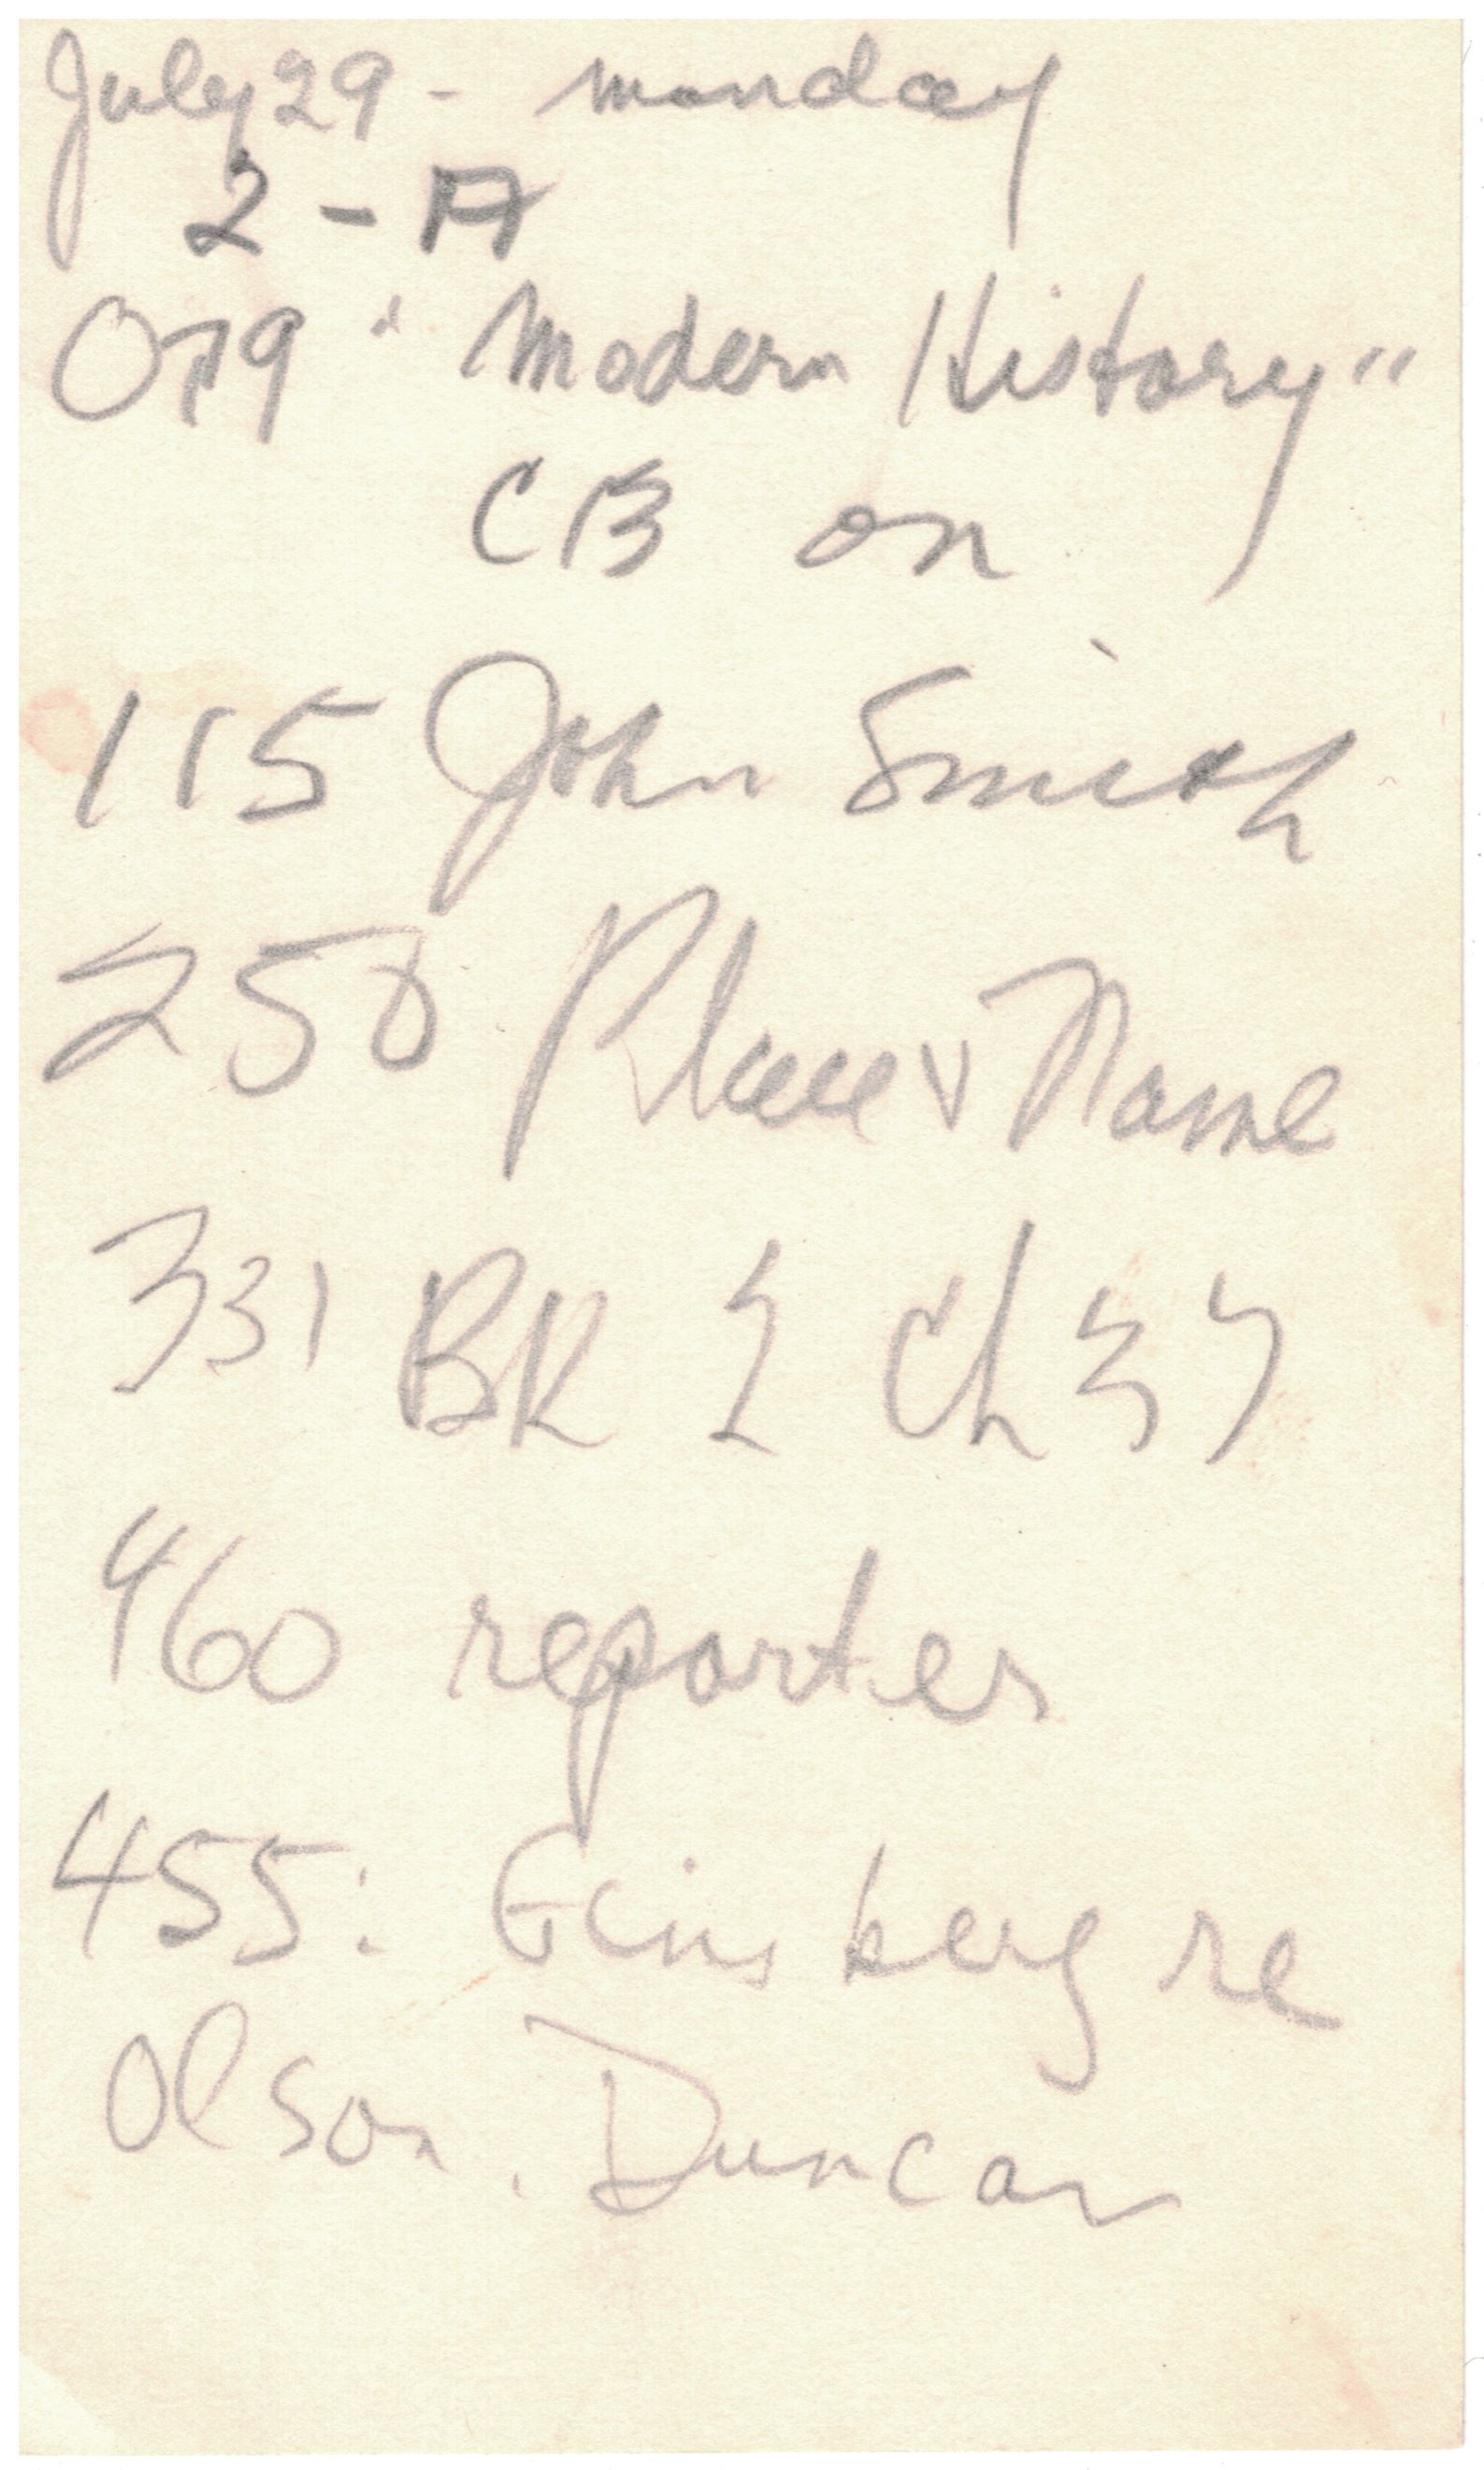 July 29 - monday
2 - A
079 "Modern History"
CB on
115 John Smith
250 Place v Name
331 BK 2 Ch 37
460 reporter
455: Ginsberg re
Olson. Duncan